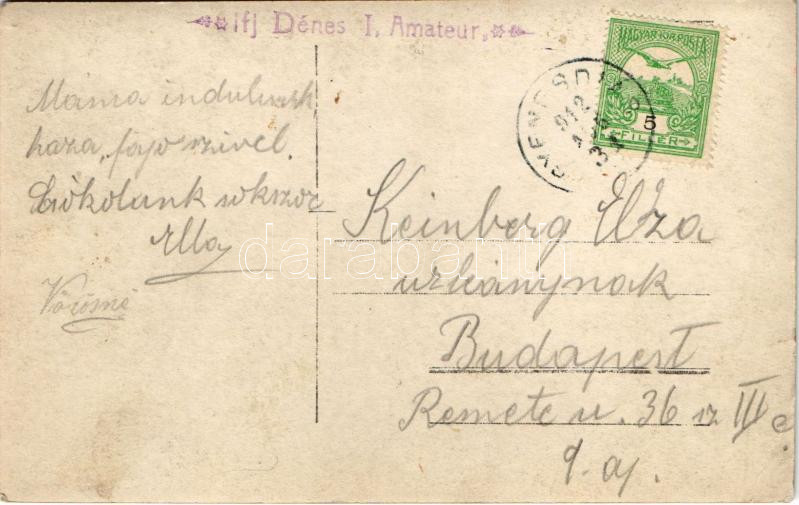 Ifj Dénes I, Amateur,
MAGYAR KIR. POSTA
5
FILLÉR
912
Máma indulunk
haza, fájó szivel.
Csókolunk sokszor
Ella
Keinberg Elza
urleánynak
Budapest
Remete u. 36 sz III e
9. aj.
darabanth